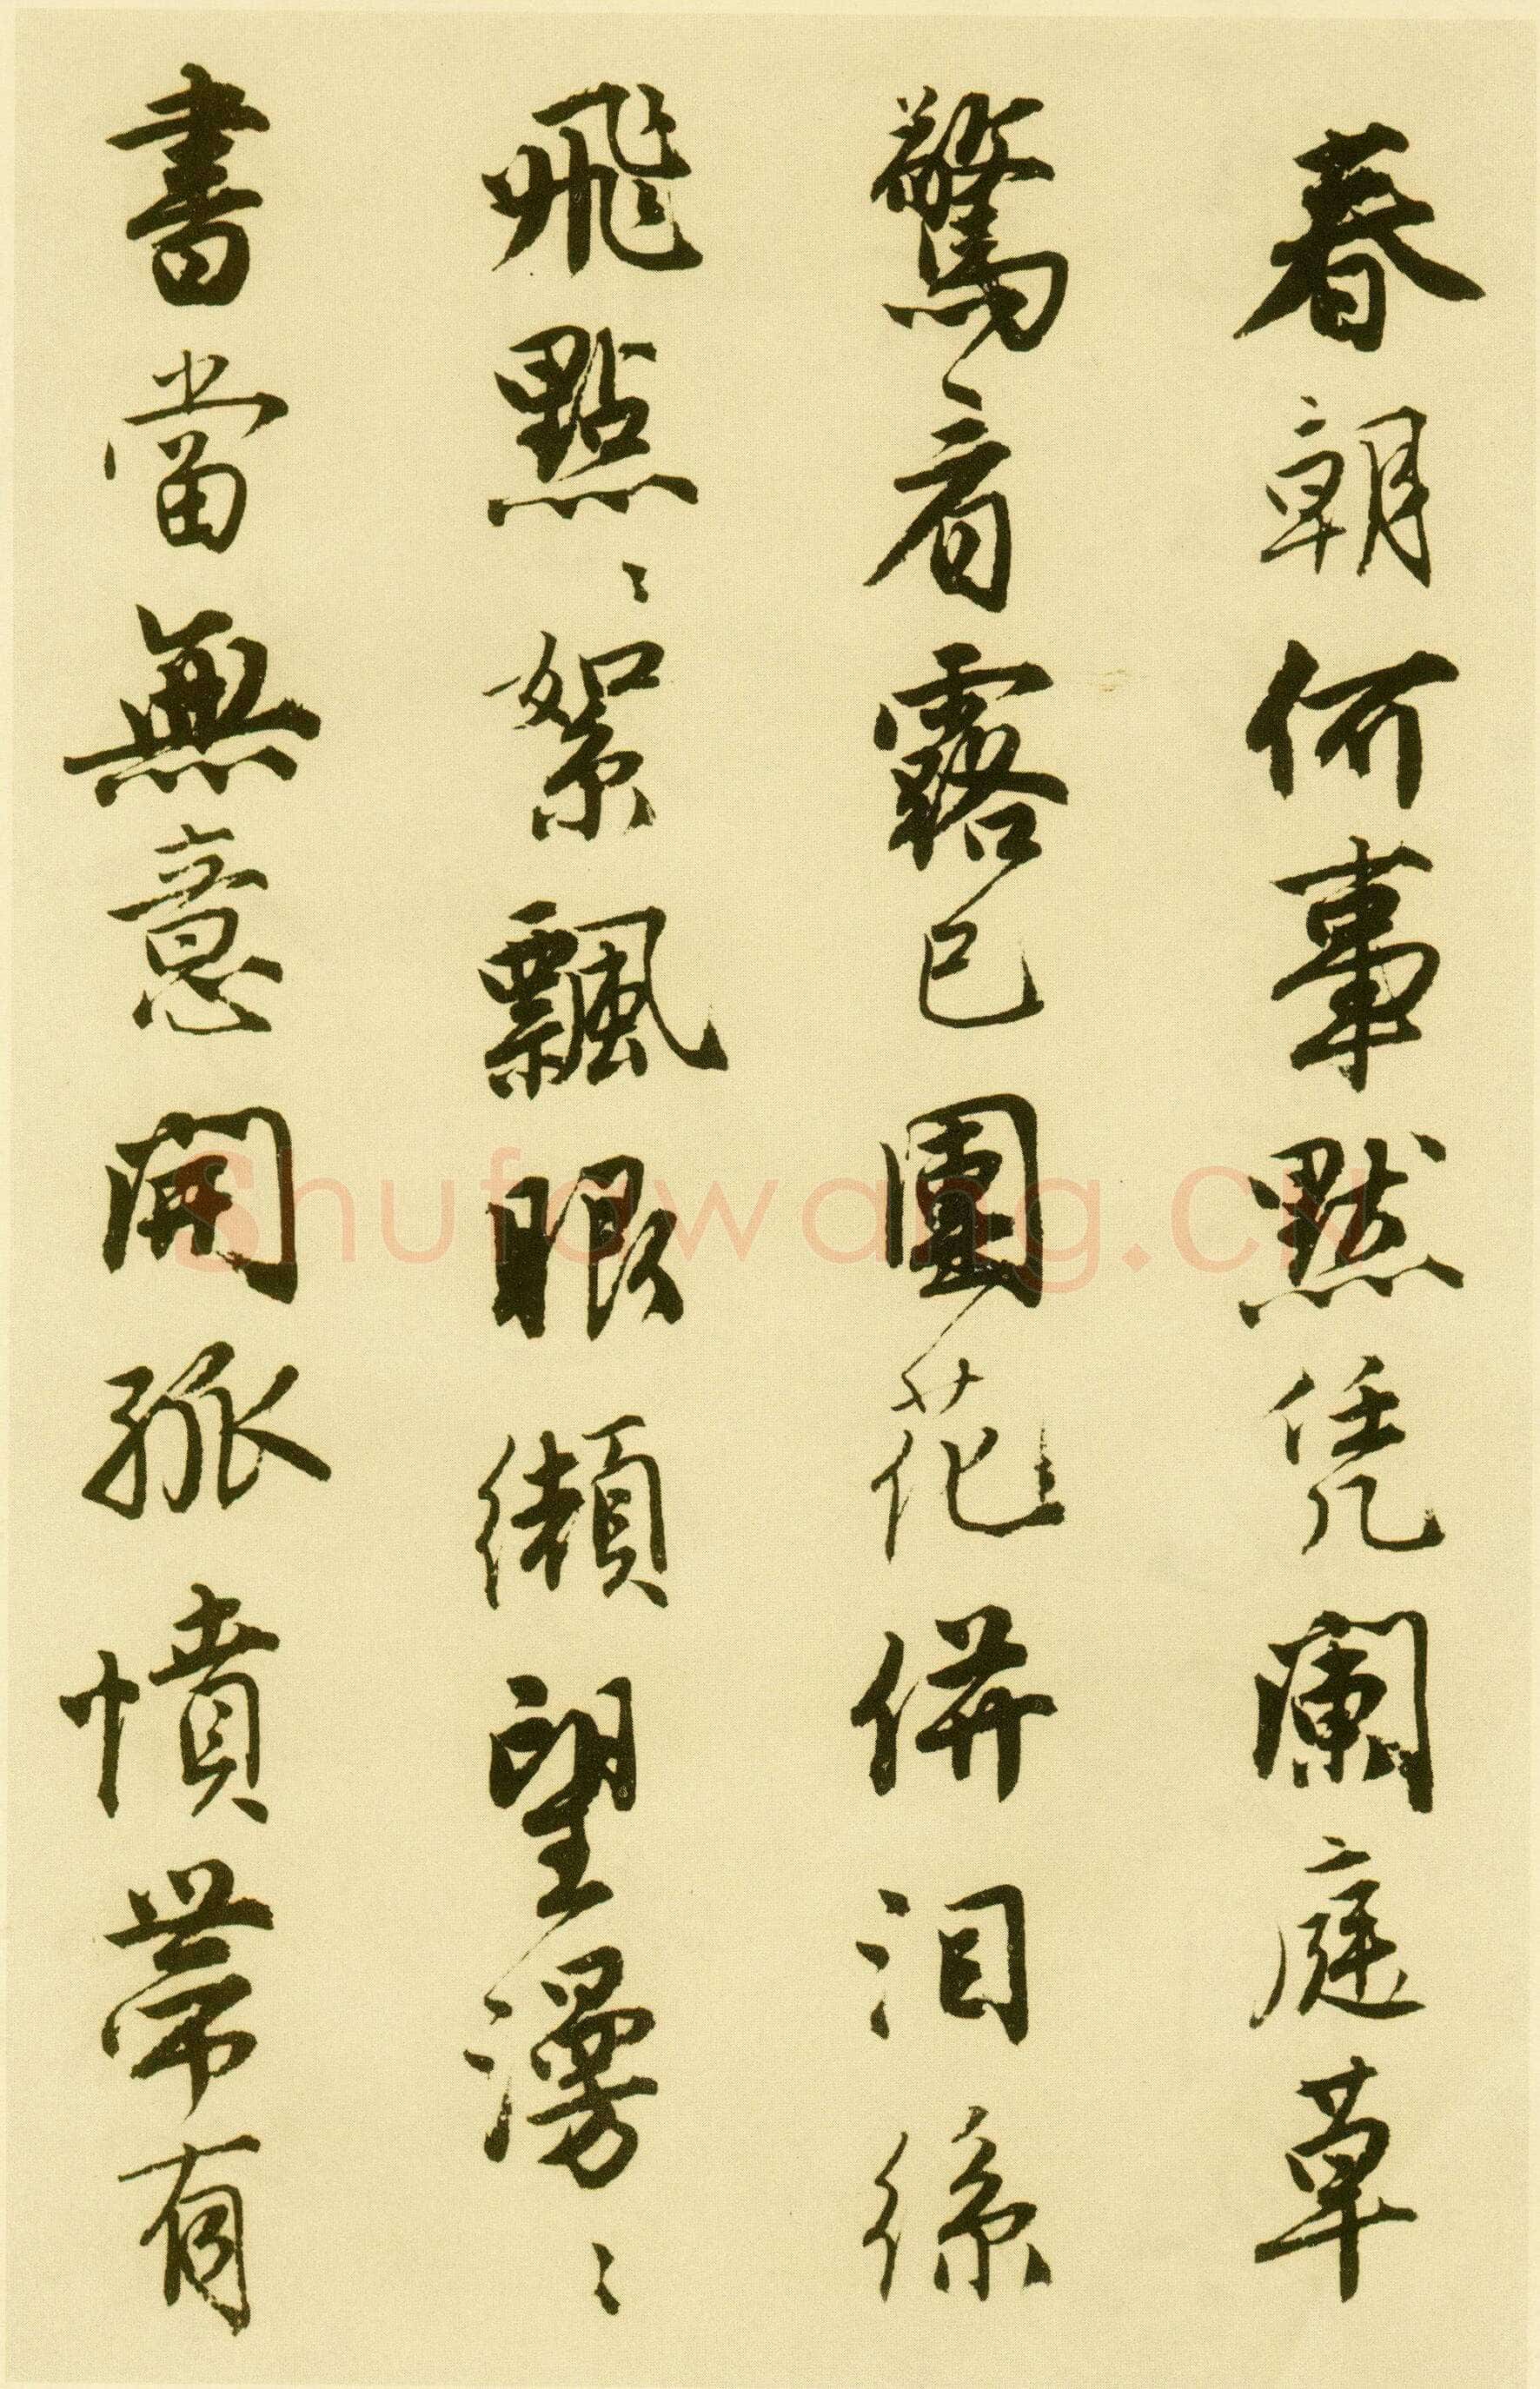 春朝何事默凭闌庭草
驚看露已團花併泪絲
飛點〻絮飄眼纈望漫〻
書當無意開孤憤帶有
Shufawang.cn